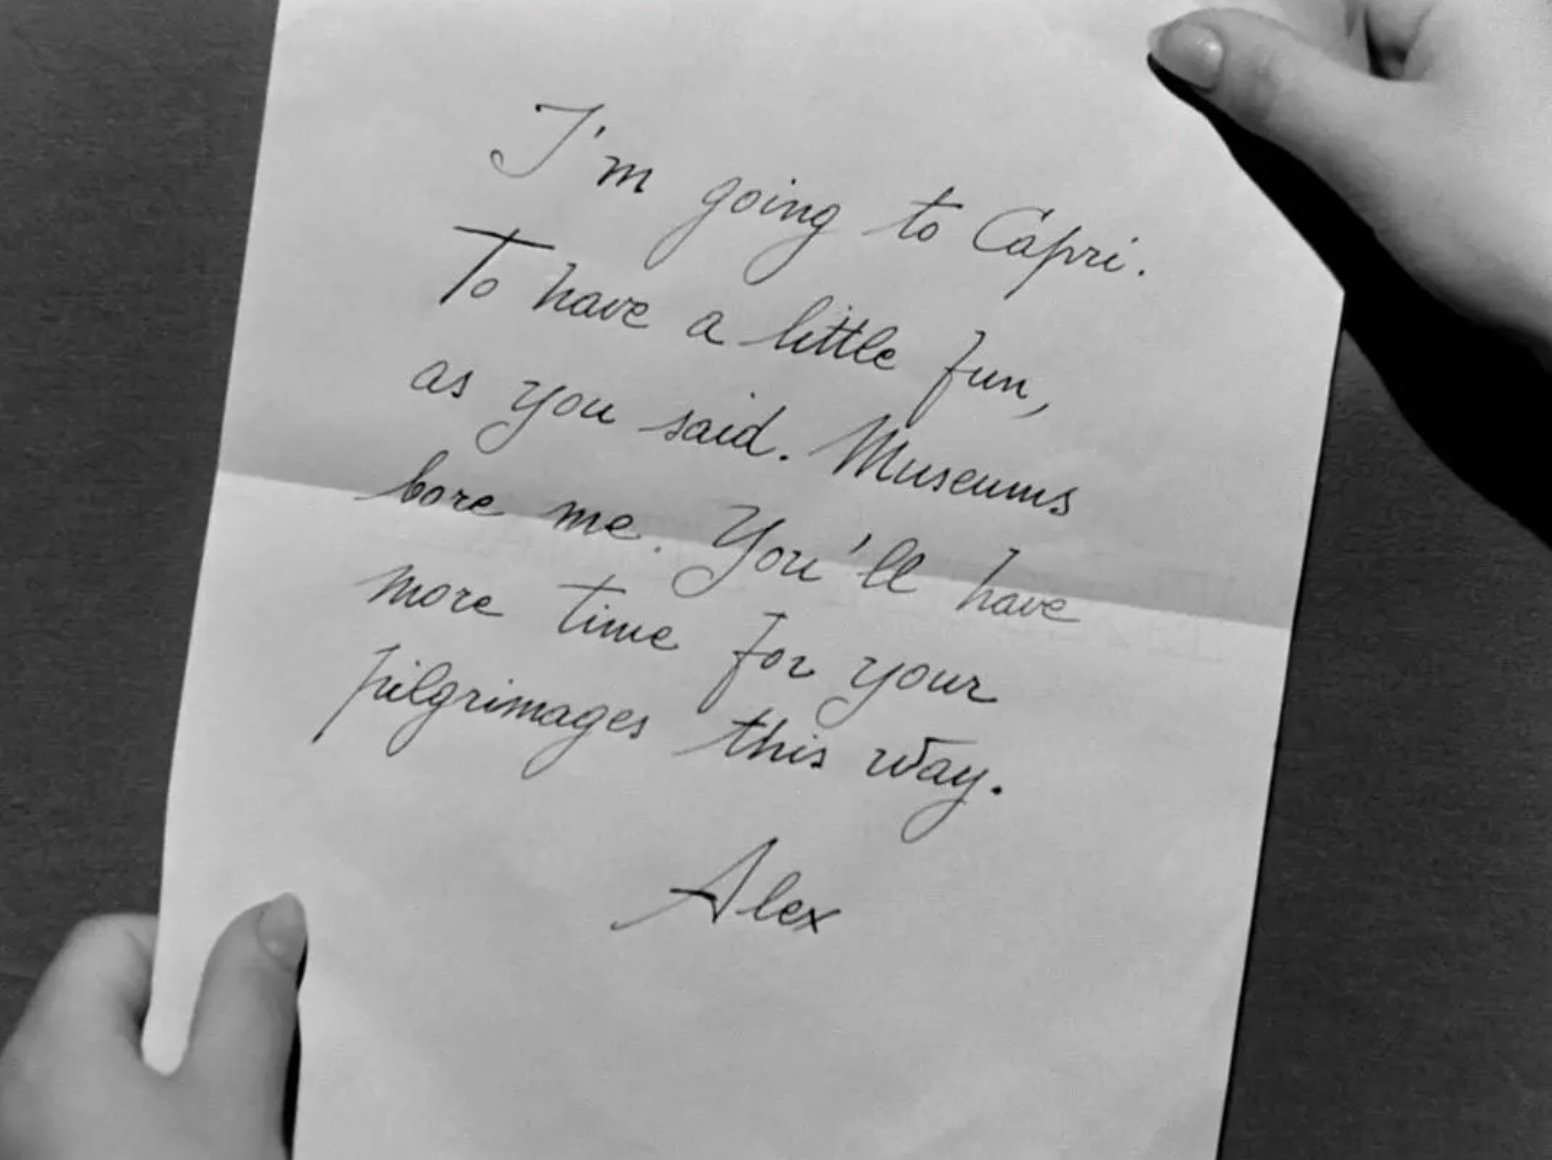 I'm going to Capri.
To have a little fun,
as you said. Museums
bore me. You'll have
more time for your
pilgrimages this way.
Alex